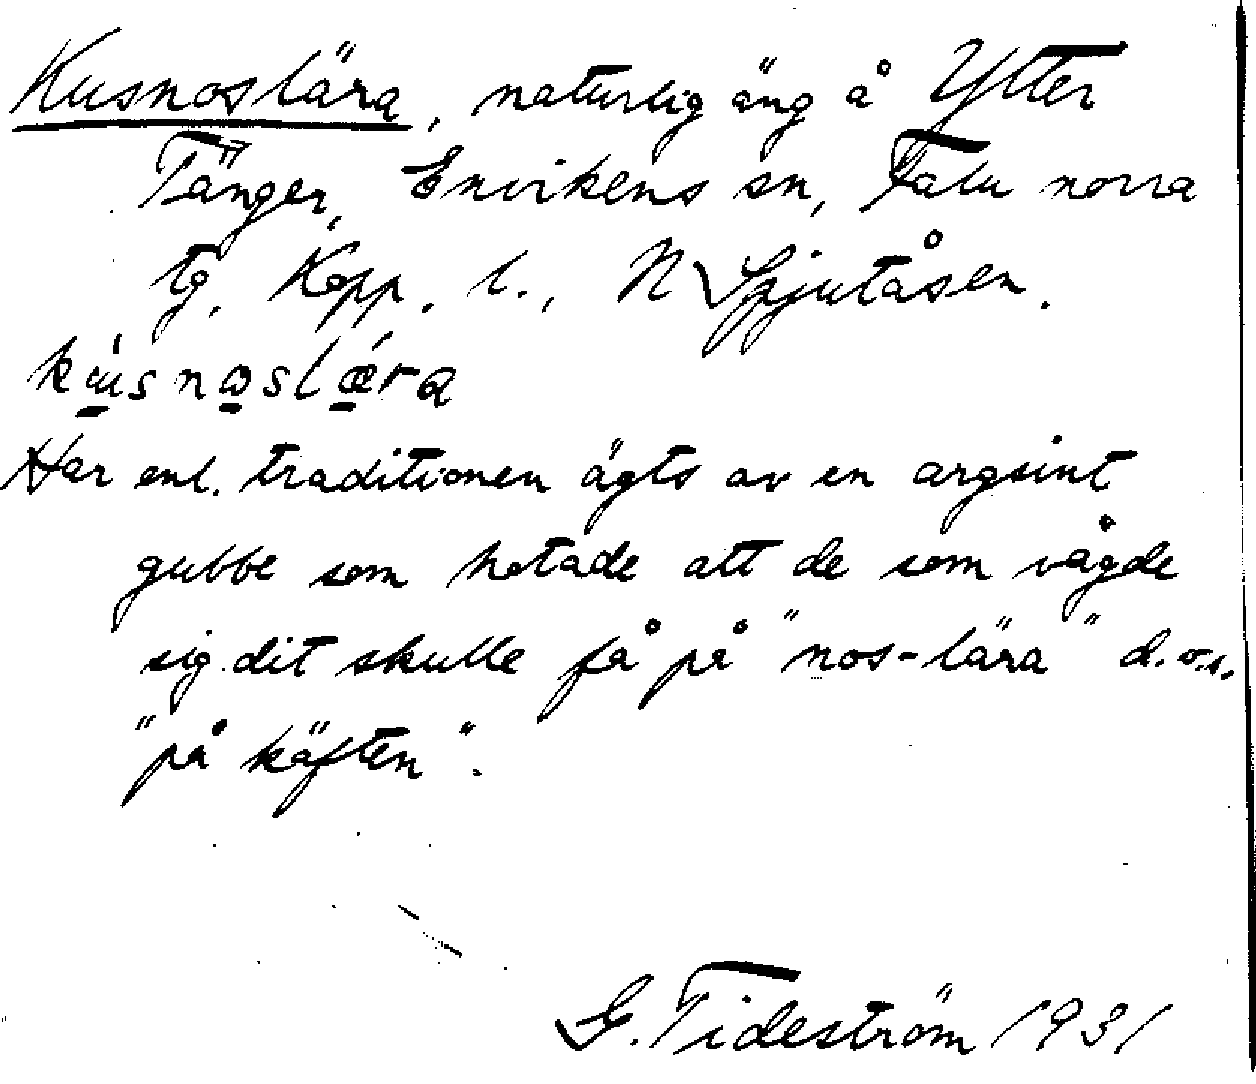 Kusnoslära, naturlig äng å Ytter
Tänger, Envikens sn, Falu norra
tg. Kopp. l., N Spjutåsen.
kúsnoslǽra
Har enl. traditionen ägts av en argsint
gubbe som hotade att de som vågde
sig dit skulle få på "nos-lära" d.v.s.
"på käften".
G. Tideström 1931